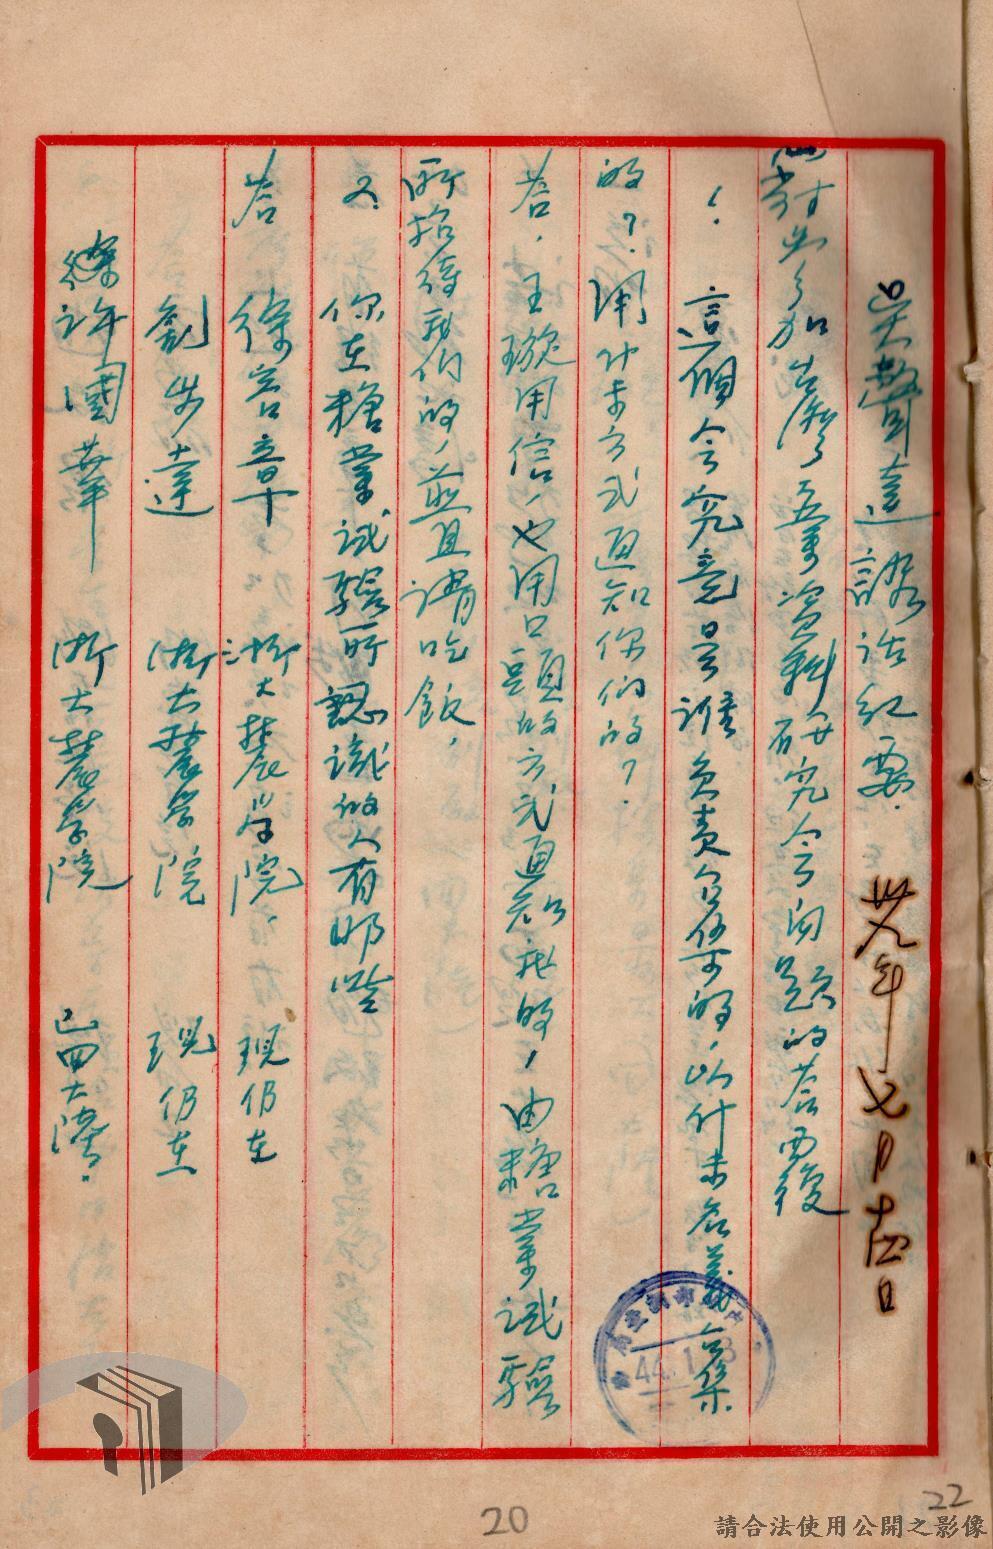 吳聲達談話紀要. 卅九年七月十五日
對出参加台灣土壤資料研究会問題的答覆
1. 這個会究竟是誰負責召集的，以什末名義召集
的？用什末方式通知你們的？
答. 王璇用信，也用口頭的方式通知我的，由糖業試驗
所招待我們的，並且請吃飯，
2. 你在糖業試驗所認識的人有那些
答 徐言章 浙大農学院. 現仍在
劉步達 浙大農学院 現仍在
許國華 浙大農学院 已回大陸.
44.1.
20
22
請合法使用公開之影像